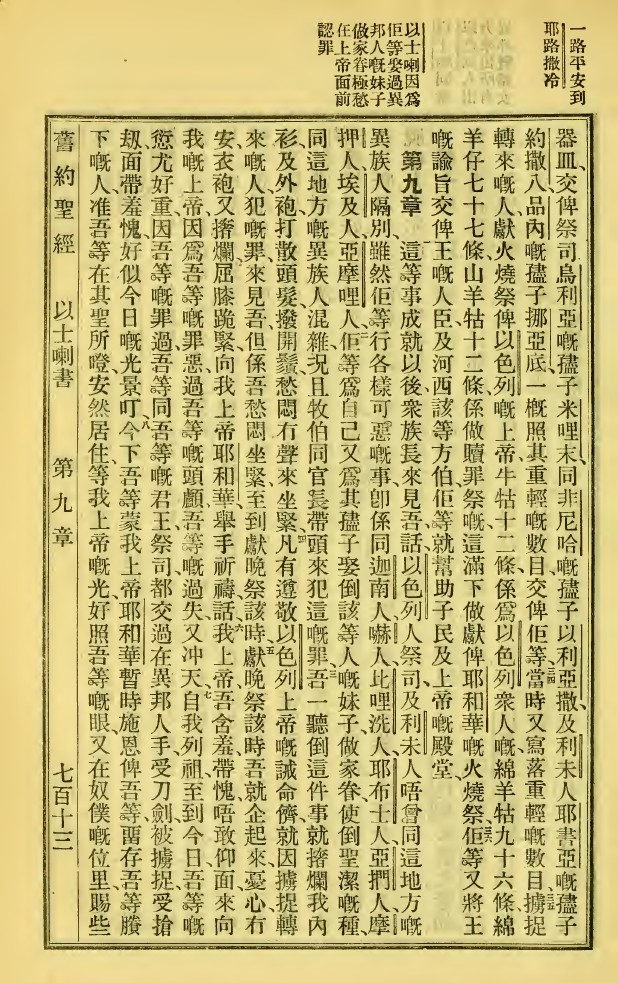 一路平安到
耶路撒冷
以士喇因爲
佢等娶過異
邦人嘅妹子
做家眷極愁
在上帝面前
認罪
器皿、交俾祭司烏利亞嘅孻子米哩末、同非尼哈嘅孻子以利亞撒、及利未人耶書亞嘅孻子
約撒八、品內嘅孻子挪亞底、一概照其重輕嘅數目、交俾佢等、當時又寫落重輕嘅數目、擄捉
轉來嘅人、獻火燒祭俾以色列嘅上帝、牛牯十二條、係爲以色列衆人嘅、綿羊牯九十六條、綿
羊仔七十七條、山羊牯十二條、係做贖罪祭嘅、這滿下做獻俾耶和華嘅火燒祭、佢等又將王
嘅諭旨、交俾王嘅人臣、及河西該等方伯、佢等就幫助子民、及上帝嘅殿堂、
第九章 這等事成就以後、衆族長來見吾話、以色列人祭司及利未人、唔曾同這地方嘅
異族人隔別、雖然佢等行各樣可惡嘅事、卽係同迦南人、嚇人、比哩洗人、耶布士人、亞捫人、摩
押人、埃及人、亞摩哩人、佢等爲自己又爲其孻子、娶倒該等人嘅妹子做家眷、使倒聖潔嘅種、
同這地方嘅異族人混雜、况且牧伯同官長、帶頭來犯這嘅罪、吾一聽倒這件事、就撦爛我內
衫及外袍、打散頭髮、撥開鬚、愁悶冇聲來坐緊、凡有遵敬以色列上帝嘅誡命儕、就因擄捉轉
來嘅人犯嘅罪、來見吾、但係吾愁悶坐緊、至到獻晚祭該時、獻晚祭該時、吾就企起來、憂心冇
安、衣袍又撦爛、屈膝跪緊、向我上帝耶和華舉手祈禱、話、我上帝、吾含羞帶愧、唔敢仰面來向
我嘅上帝、因爲吾等嘅罪惡、過吾等嘅頭顱、吾等嘅過失、又冲天、自我列祖至到今日、吾等嘅
愆尤好重、因吾等嘅罪過、吾等同吾等嘅君王祭司、都交過在異邦人手、受刀劍、被擄捉、受搶
刼、面帶羞愧、好似今日嘅光景、叮今下吾等蒙我上帝耶和華、暫時施恩俾吾等、畱存吾等賸
下嘅人、准吾等在其聖所噔安然居住、等我上帝嘅光好照吾等嘅眼、又在奴僕嘅位里賜些
舊約聖經 以士喇書 第九章 七百十三